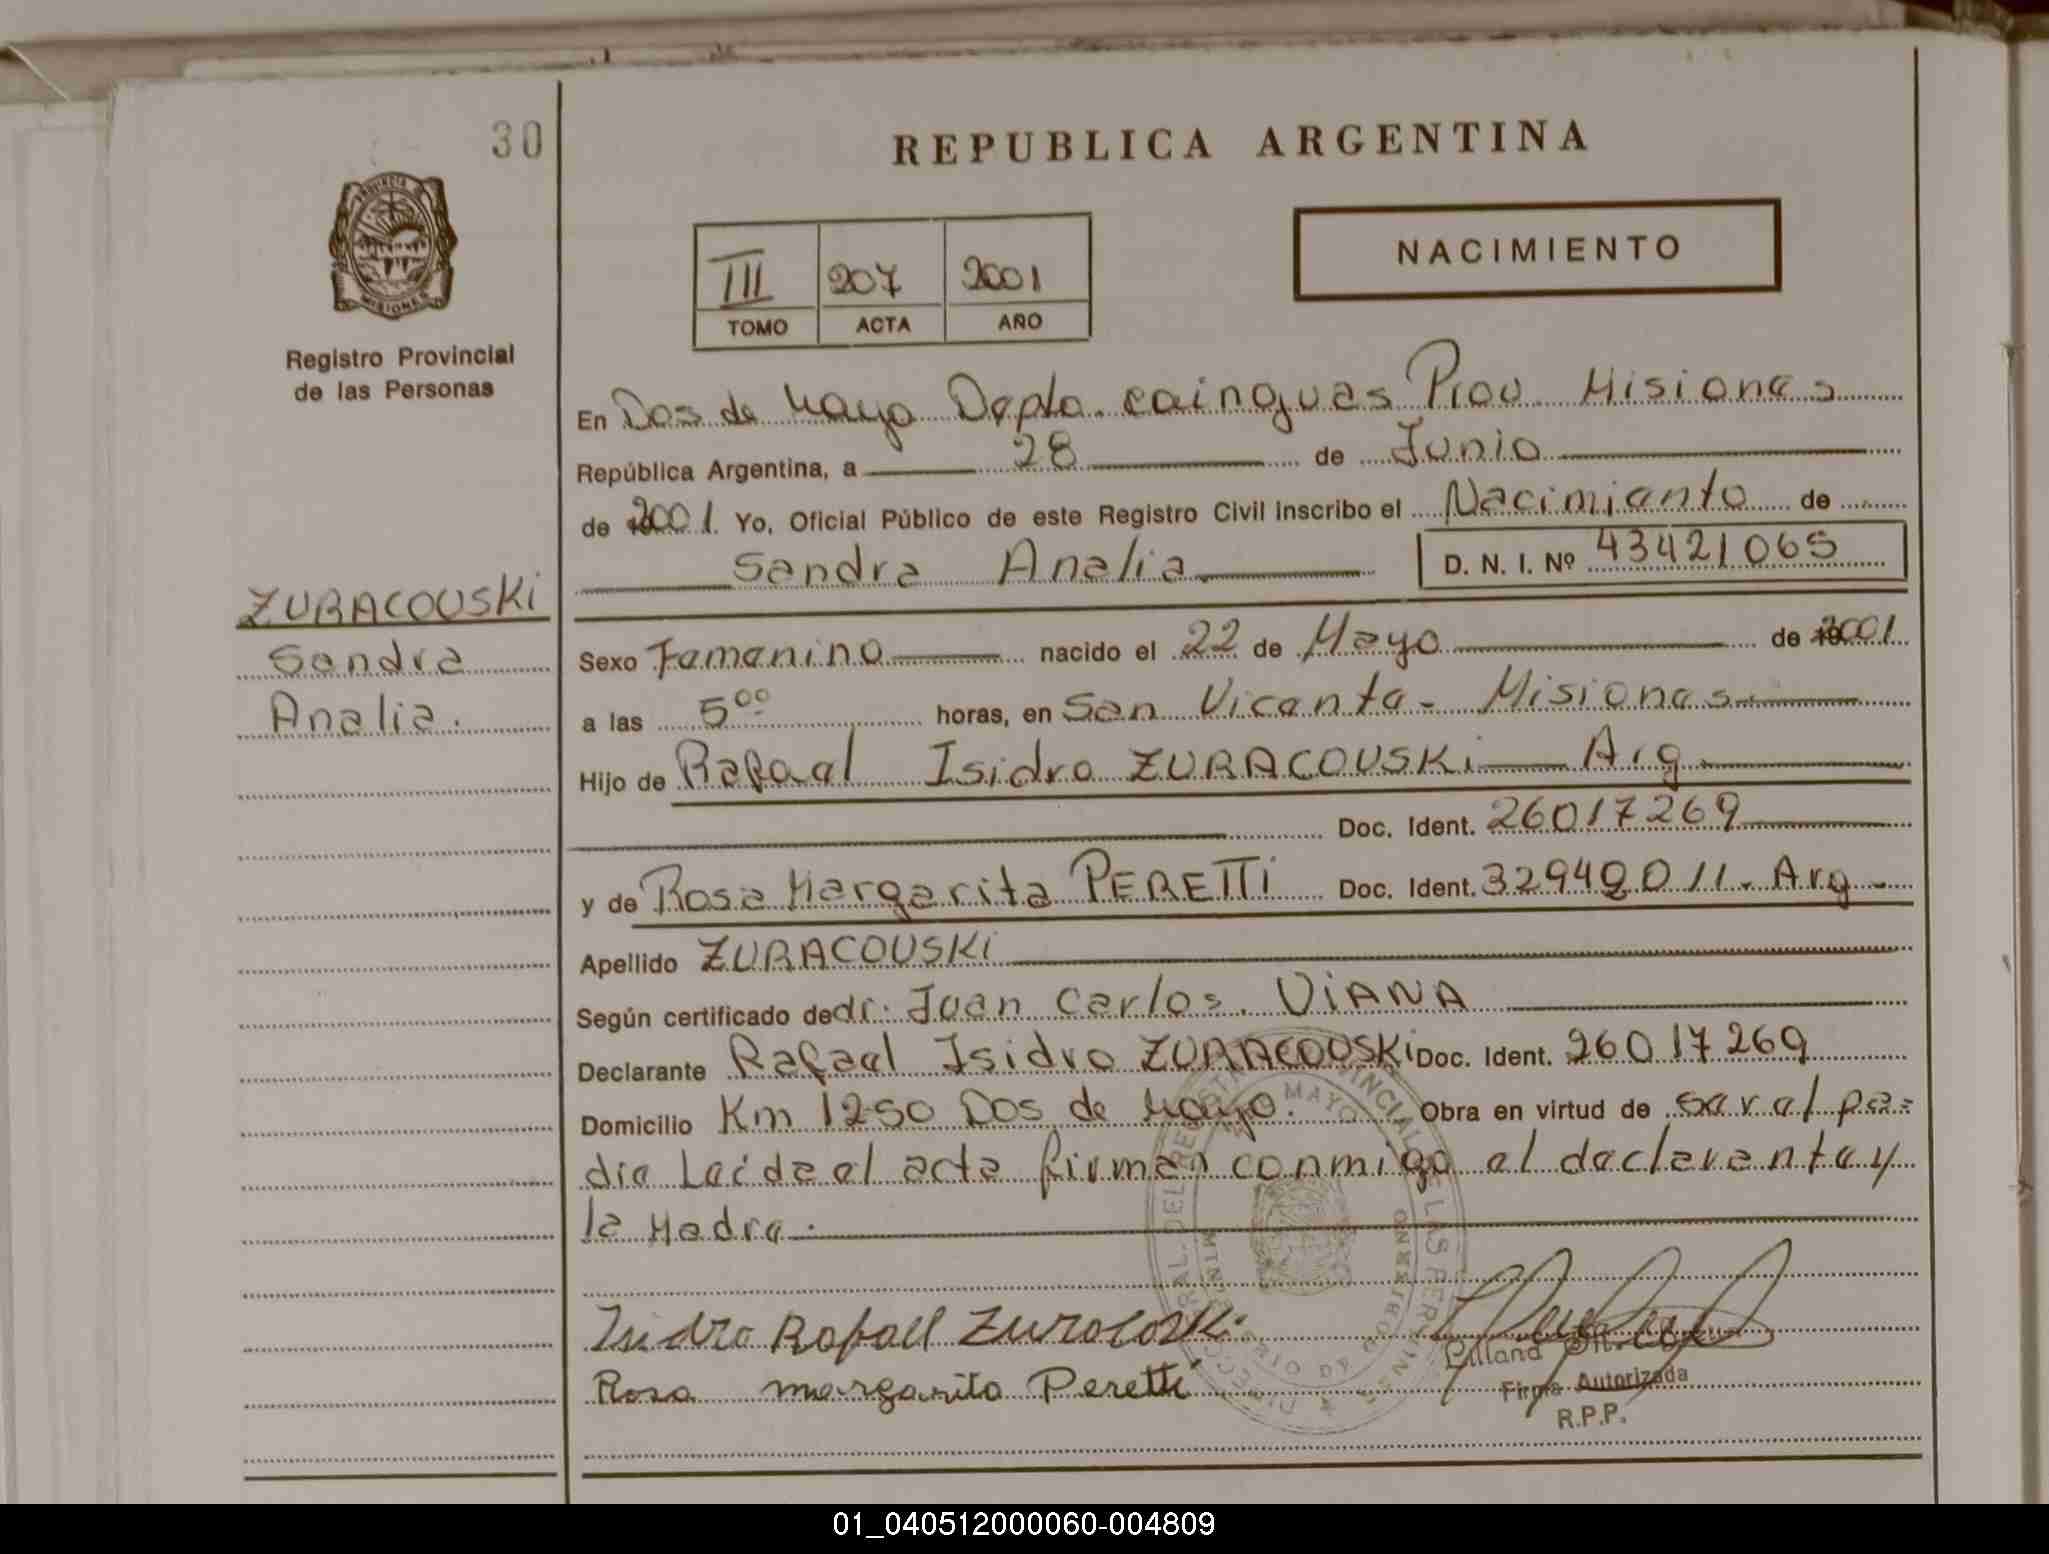 30
REPUBLICA ARGENTINA
PROVINCIA DE MISIONES
Registro Provincial
de las Personas
III 207 2001
TOMO ACTA AÑO
NACIMIENTO
En Dos de Mayo Depto. cainguas Prov Misiones
República Argentina, a 28 de Junio
de 2001. Yo, Oficial Público de este Registro Civil inscribo el Nacimiento de
Sandra Analia D. N. I. Nº 43421065
ZURACOUSKi
Sandra
Analia.
Sexo Femenino nacido el 22 de Mayo de 2001
a las 5 00 horas, en San Vicente - Misiones
Hijo de Rafael Isidro ZURACOUSKi Arg
Doc. Ident. 26017269
y de Rosa Margarita PERETTi Doc. Ident. 32949011. Arg.
Apellido ZURACOUSKi
Según certificado de dr. Juan Carlos. ViANA
Declarante Rafael Isidro ZURACOUSKi Doc. Ident. 26017269
Domicilio Km 1250 Dos de Mayo. Obra en virtud de ser el pa=
dre Leida el acta firman conmigo el declarante y
la Madre.
Isidro Rafael
Rosa margarita Peretti
Firma Autorizada
R.P.P.
01_040512000060-004809